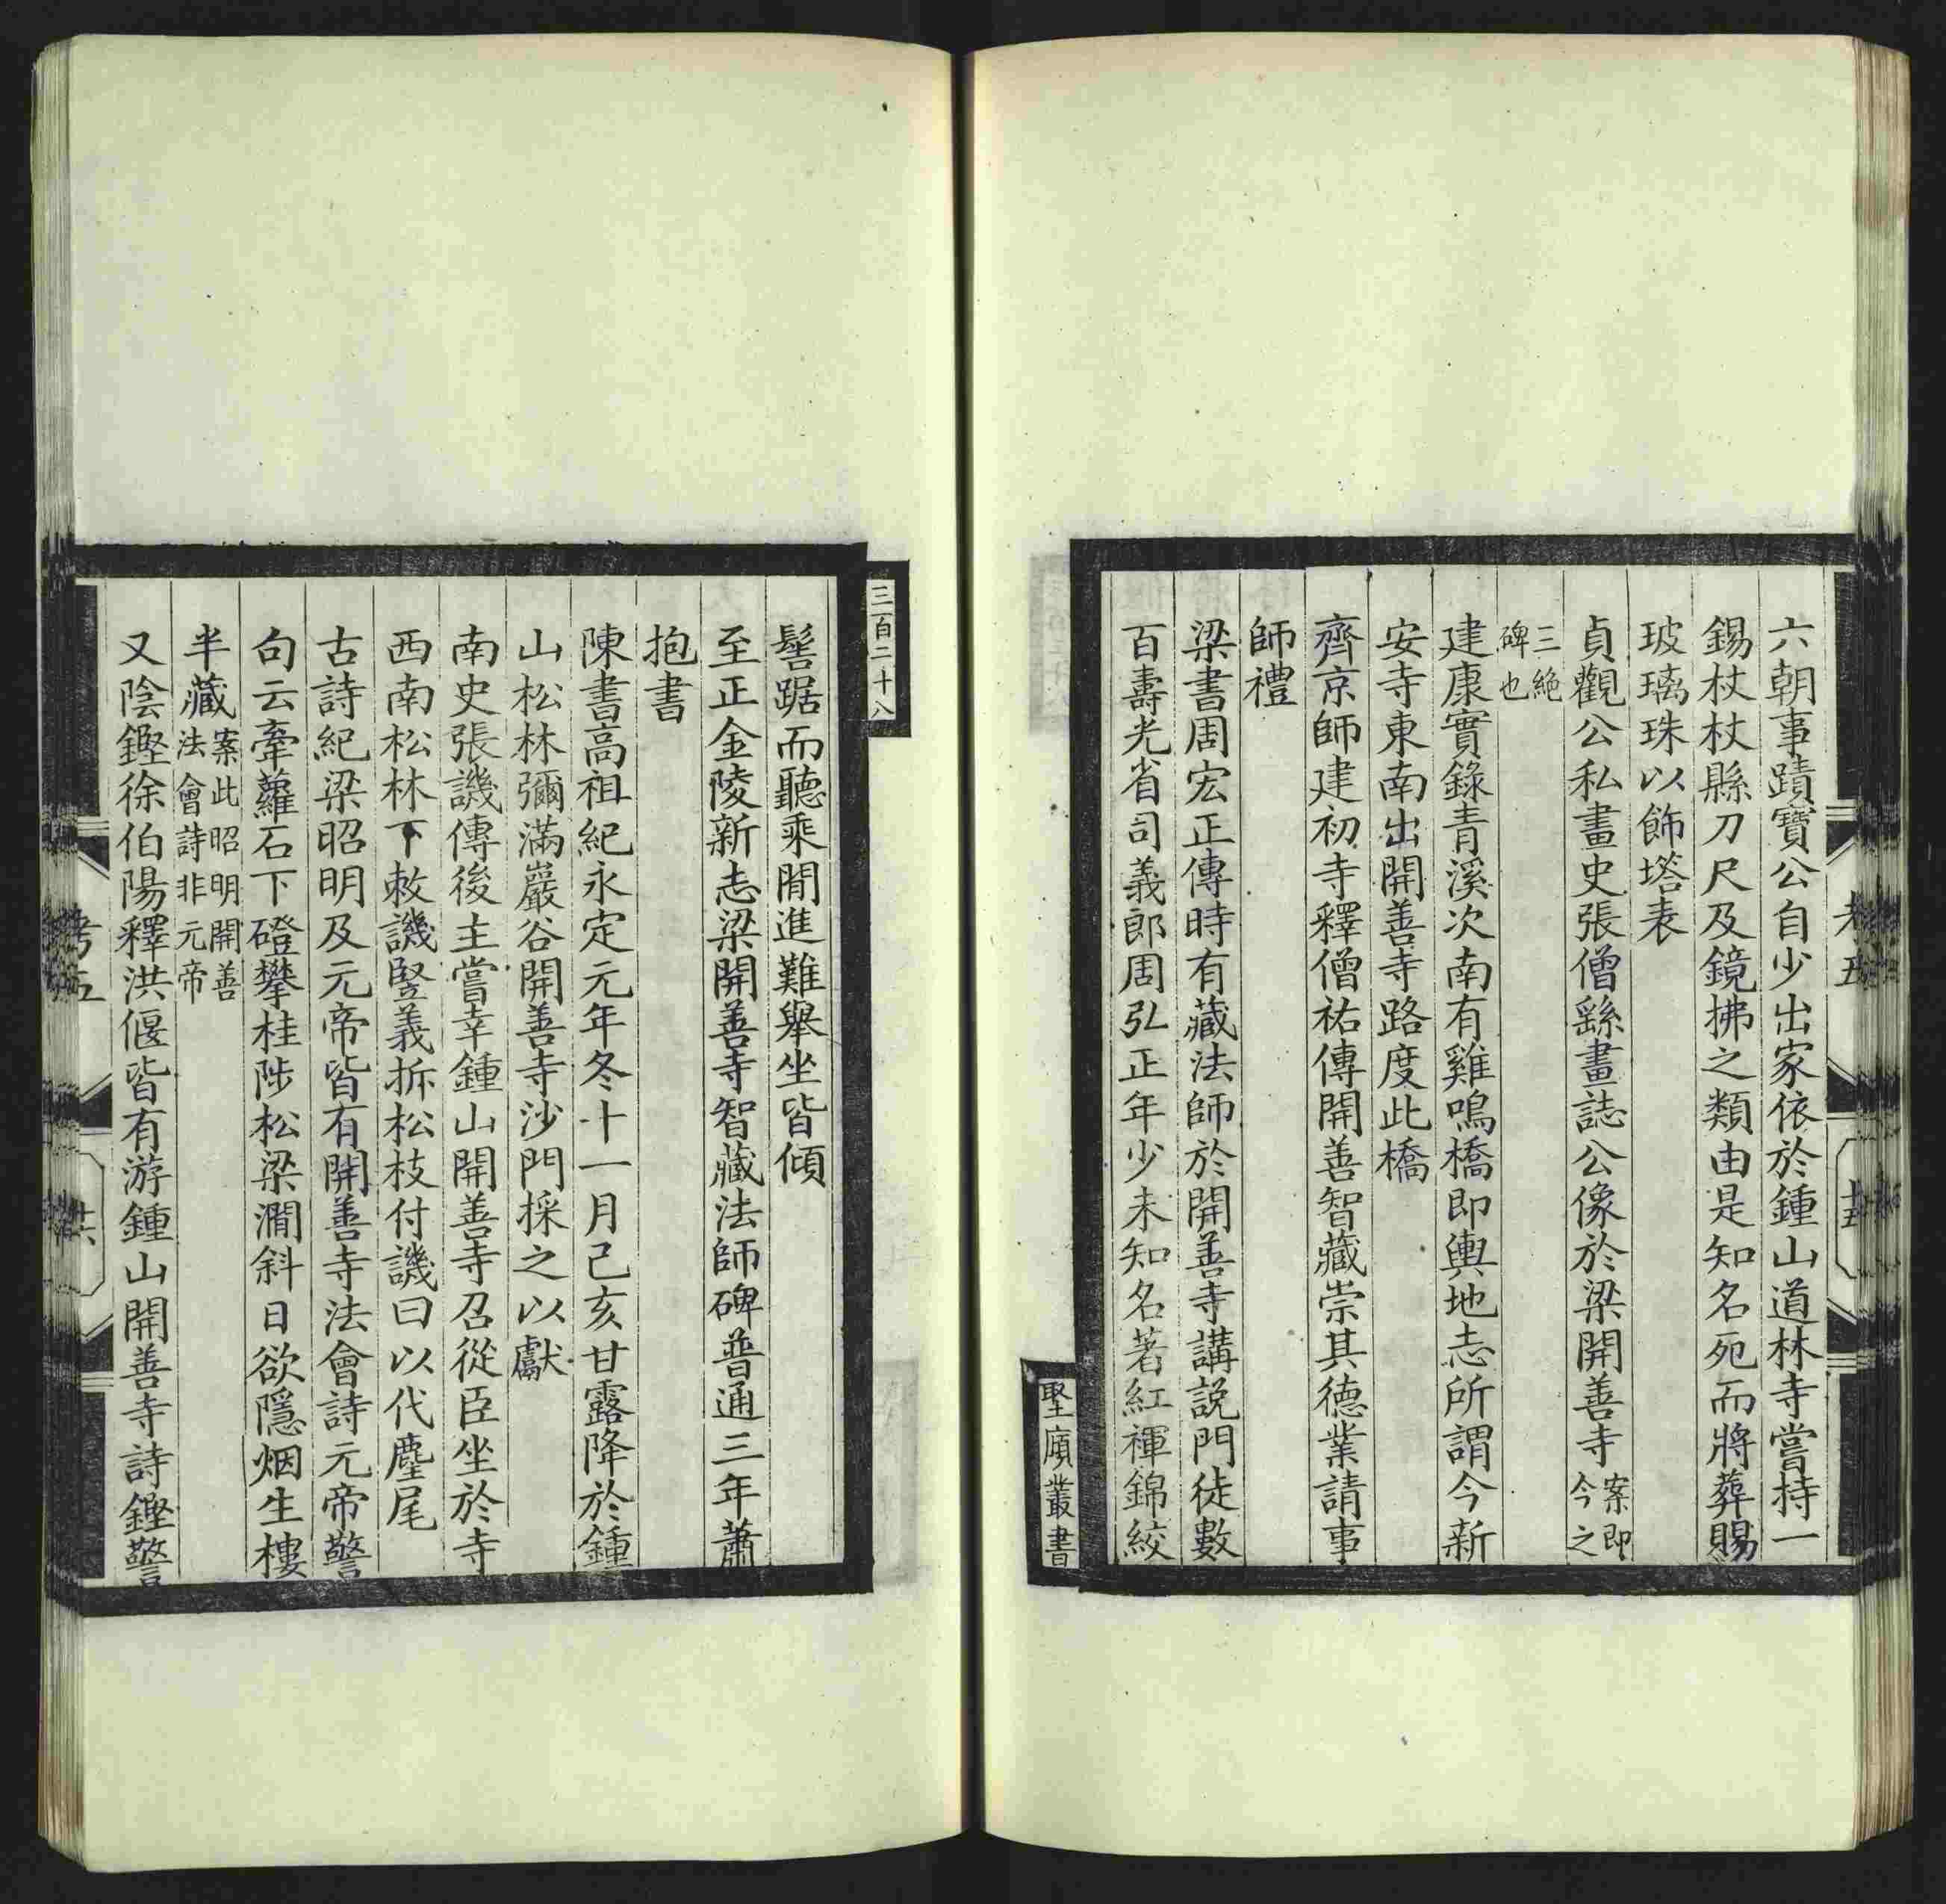 六朝事蹟寶公自少出家依於鍾山道林寺嘗持一
錫杖杖縣刀尺及鏡拂之類由是知名死而將葬賜
玻璃珠以飾塔表
貞觀公私畫史張僧繇畫誌公像於梁開善寺案即今之
三絕碑也
建康實錄青溪次南有雞鳴橋即輿地志所謂今新
安寺東南出開善寺路度此橋
齊京師建初寺釋僧祐傳開善智藏崇其德業請事
師禮
梁書周宏正傳時有藏法師於開善寺講説門徒數
百壽光省司義郎周弘正年少未知名著紅褌錦絞
髻踞而聽乘閒進難舉坐皆傾
至正金陵新志梁開善寺智藏法師碑普通三年蕭
抱書
陳書高祖紀永定元年冬十一月己亥甘露降於鍾
山松林彌滿巖谷開善寺沙門採之以獻
南史張譏傳後主嘗幸鍾山開善寺召從臣坐於寺
西南松林下敕譏竪義拆松枝付譏曰以代麈尾
古詩紀梁昭明及元帝皆有開善寺法會詩元帝警
句云牽蘿石下磴攀桂陟松梁澗斜日欲隱烟生樓
半藏案此昭明開善法會詩非元帝
又陰鏗徐伯陽釋洪偃皆有游鍾山開善寺詩鏗警
考五
聖廎叢書
三百二十八
考五